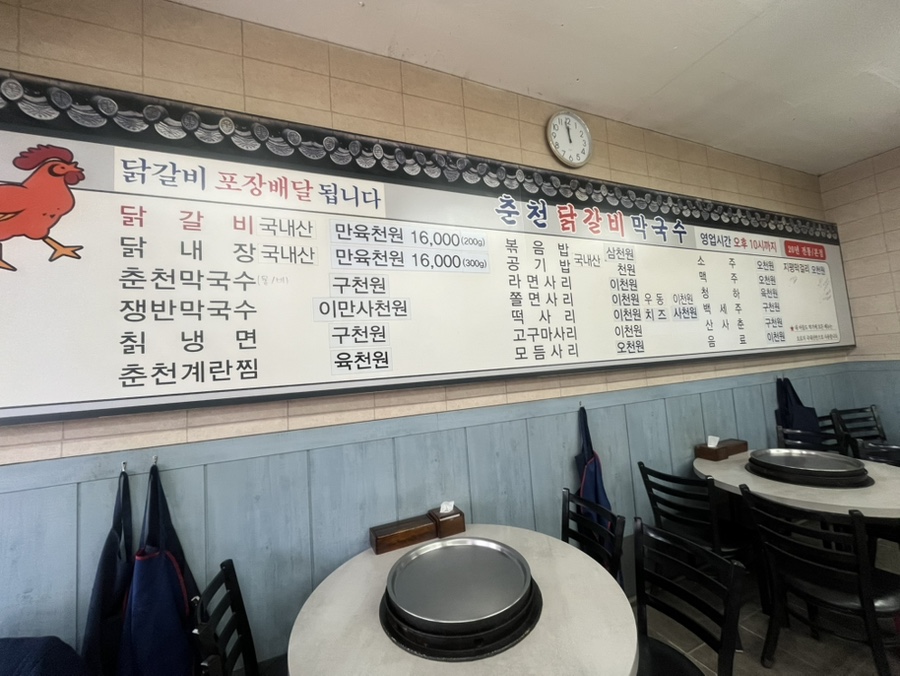 닭갈비 포장배달 됩니다
닭 갈 비 국내산 만육천원 16,000(200g)
닭 내 장 국내산 만육천원 16,000(300g)
춘천막국수 구천원
쟁반막국수 이만사천원
칡 냉 면 구천원
춘천계란찜 육천원
춘천닭갈비막국수
영업시간 오후 10시까지
볶 음 밥 삼천원
공 기 밥 국내산 천원
라 면 사 리 이천원
쫄 면 사 리 이천원 우동 이천원
떡 사 리 이천원 치즈 사천원
고구마사리 이천원
모 듬 사 리 오천원
소 주 오천원
맥 주 오천원
청 하 육천원
백 세 주 구천원
산 사 춘 구천원
음 료 이천원
20년 전통
지평막걸리 오천원